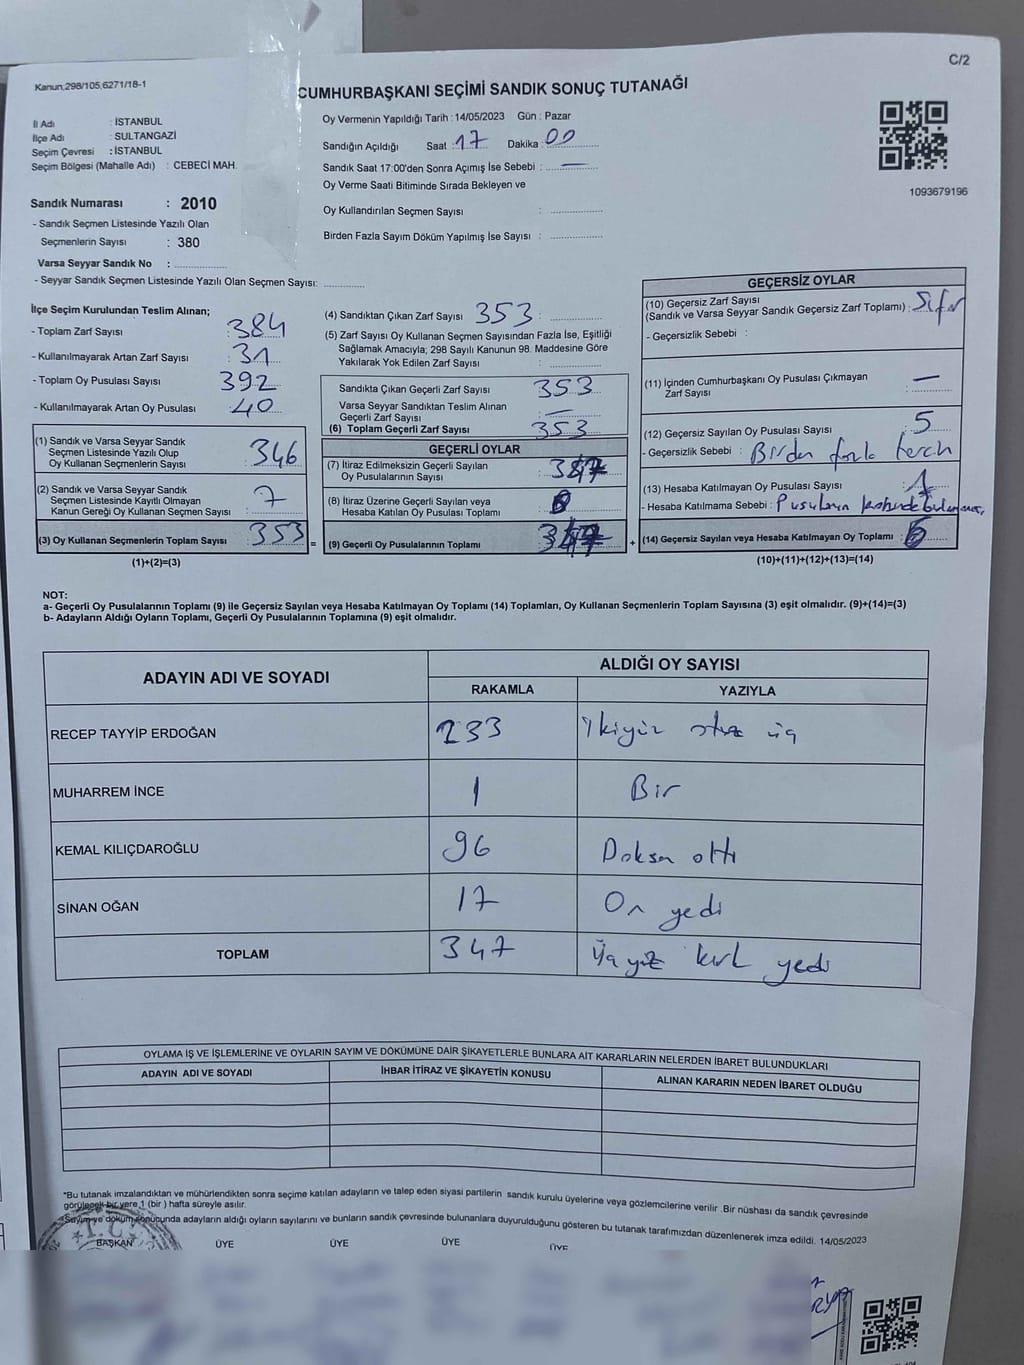 C/2
Kanun;298/105,6271/18-1
CUMHURBAŞKANI SEÇİMİ SANDIK SONUÇ TUTANAĞI
İl Adı : İSTANBUL
İlçe Adı : SULTANGAZİ
Seçim Çevresi : İSTANBUL
Seçim Bölgesi (Mahalle Adı) : CEBECİ MAH.
Oy Vermenin Yapıldığı Tarih : 14/05/2023 Gün : Pazar
Sandığın Açıldığı Saat : 17 Dakika : 00
Sandık Saat 17:00'den Sonra Açımış İse Sebebi : —
Oy Verme Saati Bitiminde Sırada Bekleyen ve
Oy Kullandırılan Seçmen Sayısı :
Birden Fazla Sayım Döküm Yapılmış İse Sayısı :
1093679196
Sandık Numarası : 2010
- Sandık Seçmen Listesinde Yazılı Olan
Seçmenlerin Sayısı : 380
Varsa Seyyar Sandık No :
- Seyyar Sandık Seçmen Listesinde Yazılı Olan Seçmen Sayısı:
İlçe Seçim Kurulundan Teslim Alınan;
- Toplam Zarf Sayısı : 384
- Kullanılmayarak Artan Zarf Sayısı : 31
- Toplam Oy Pusulası Sayısı : 392
- Kullanılmayarak Artan Oy Pusulası : 40
(1) Sandık ve Varsa Seyyar Sandık
Seçmen Listesinde Yazılı Olup
Oy Kullanan Seçmenlerin Sayısı : 346
(2) Sandık ve Varsa Seyyar Sandık
Seçmen Listesinde Kayıtlı Olmayan
Kanun Gereği Oy Kullanan Seçmen Sayısı : 7
(3) Oy Kullanan Seçmenlerin Toplam Sayısı : 353 =
(1)+(2)=(3)
(4) Sandıktan Çıkan Zarf Sayısı : 353
(5) Zarf Sayısı Oy Kullanan Seçmen Sayısından Fazla İse, Eşitliği
Sağlamak Amacıyla; 298 Sayılı Kanunun 98. Maddesine Göre
Yakılarak Yok Edilen Zarf Sayısı :
Sandıkta Çıkan Geçerli Zarf Sayısı : 353
Varsa Seyyar Sandıktan Teslim Alınan
Geçerli Zarf Sayısı : —
(6) Toplam Geçerli Zarf Sayısı : 353
GEÇERLİ OYLAR
(7) İtiraz Edilmeksizin Geçerli Sayılan
Oy Pusulalarının Sayısı : 347
(8) İtiraz Üzerine Geçerli Sayılan veya
Hesaba Katılan Oy Pusulası Toplamı :
(9) Geçerli Oy Pusulalarının Toplamı : 347 +
GEÇERSİZ OYLAR
(10) Geçersiz Zarf Sayısı
(Sandık ve Varsa Seyyar Sandık Geçersiz Zarf Toplamı) : Sıfır
- Geçersizlik Sebebi :
(11) İçinden Cumhurbaşkanı Oy Pusulası Çıkmayan
Zarf Sayısı : —
(12) Geçersiz Sayılan Oy Pusulası Sayısı : 5
- Geçersizlik Sebebi : Birden fazla tercih
(13) Hesaba Katılmayan Oy Pusulası Sayısı : 1
- Hesaba Katılmama Sebebi : Pusulanın
(14) Geçersiz Sayılan veya Hesaba Katılmayan Oy Toplamı : 6
(10)+(11)+(12)+(13)=(14)
NOT:
a- Geçerli Oy Pusulalarının Toplamı (9) ile Geçersiz Sayılan veya Hesaba Katılmayan Oy Toplamı (14) Toplamları, Oy Kullanan Seçmenlerin Toplam Sayısına (3) eşit olmalıdır. (9)+(14)=(3)
b- Adayların Aldığı Oyların Toplamı, Geçerli Oy Pusulalarının Toplamına (9) eşit olmalıdır.
ADAYIN ADI VE SOYADI ALDIĞI OY SAYISI
RAKAMLA YAZIYLA
RECEP TAYYİP ERDOĞAN 233 İkiyüz otuz üç
MUHARREM İNCE 1 Bir
KEMAL KILIÇDAROĞLU 96 Doksan altı
SİNAN OĞAN 17 On yedi
TOPLAM 347 Üçyüz kırk yedi
OYLAMA İŞ VE İŞLEMLERİNE VE OYLARIN SAYIM VE DÖKÜMÜNE DAİR ŞİKAYETLERLE BUNLARA AİT KARARLARIN NELERDEN İBARET BULUNDUKLARI
ADAYIN ADI VE SOYADI İHBAR İTİRAZ VE ŞİKAYETİN KONUSU ALINAN KARARIN NEDEN İBARET OLDUĞU
*Bu tutanak imzalandıktan ve mühürlendikten sonra seçime katılan adayların ve talep eden siyasi partilerin sandık kurulu üyelerine veya gözlemcilerine verilir .Bir nüshası da sandık çevresinde
görülecek bir yere 1 (bir ) hafta süreyle asılır.
*Sayım ve döküm konusunda adayların aldığı oyların sayılarını ve bunların sandık çevresinde bulunanlara duyurulduğunu gösteren bu tutanak tarafımızdan düzenlenerek imza edildi. 14/05/2023
T.C.
BAŞKAN ÜYE ÜYE ÜYE ÜYE